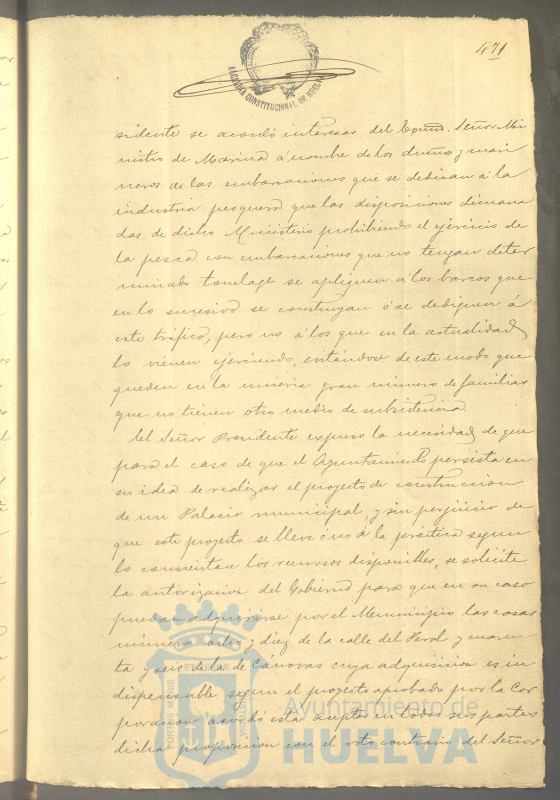 471
ALCALDIA CONSTITUCIONAL DE HUELVA
sidente se acordó interesar del Excmo. Señor Mi
nistro de Marina á nombre de los dueños y mari
neros de las embarcaciones que se dedican á la
industria pesquera que las disposiciones dimana
das de dicho Ministerio prohibiendo el ejercicio de
la pesca con embarcaciones que no tengan deter
minado tonelage se apliquen á los barcos que
en lo sucesivo se construyan ó se dediquen á
este tráfico, pero no á los que en la actualidad
lo vienen ejerciendo, evitándose de este modo que
queden en la miseria gran número de familias
que no tienen otro medio de subsistencia.
El Señor Presidente expuso la necesidad de que
para el caso de que el Ayuntamiento persista en
su idea de realizar el proyecto de construccion
de un Palacio municipal, y sin perjuicio de
que este proyecto se lleve ó no á la práctica segun
lo consientan los recursos disponibles, se solicite
la autorizacion del Gobierno para que en su caso
puedan adquirirse por el Municipio las casas
números ocho y diez de la calle del Perol y cuaren
ta y seis de la de Cánovas cuya adquisicion es in
dispensable segun el proyecto aprobado por la Cor
poracion, acordó esta aceptar en todas sus partes
dicha proposicion con el voto contrario del Señor
PORTUS MARIS ET TERRAE CUSTODIA
Ayuntamiento de
HUELVA